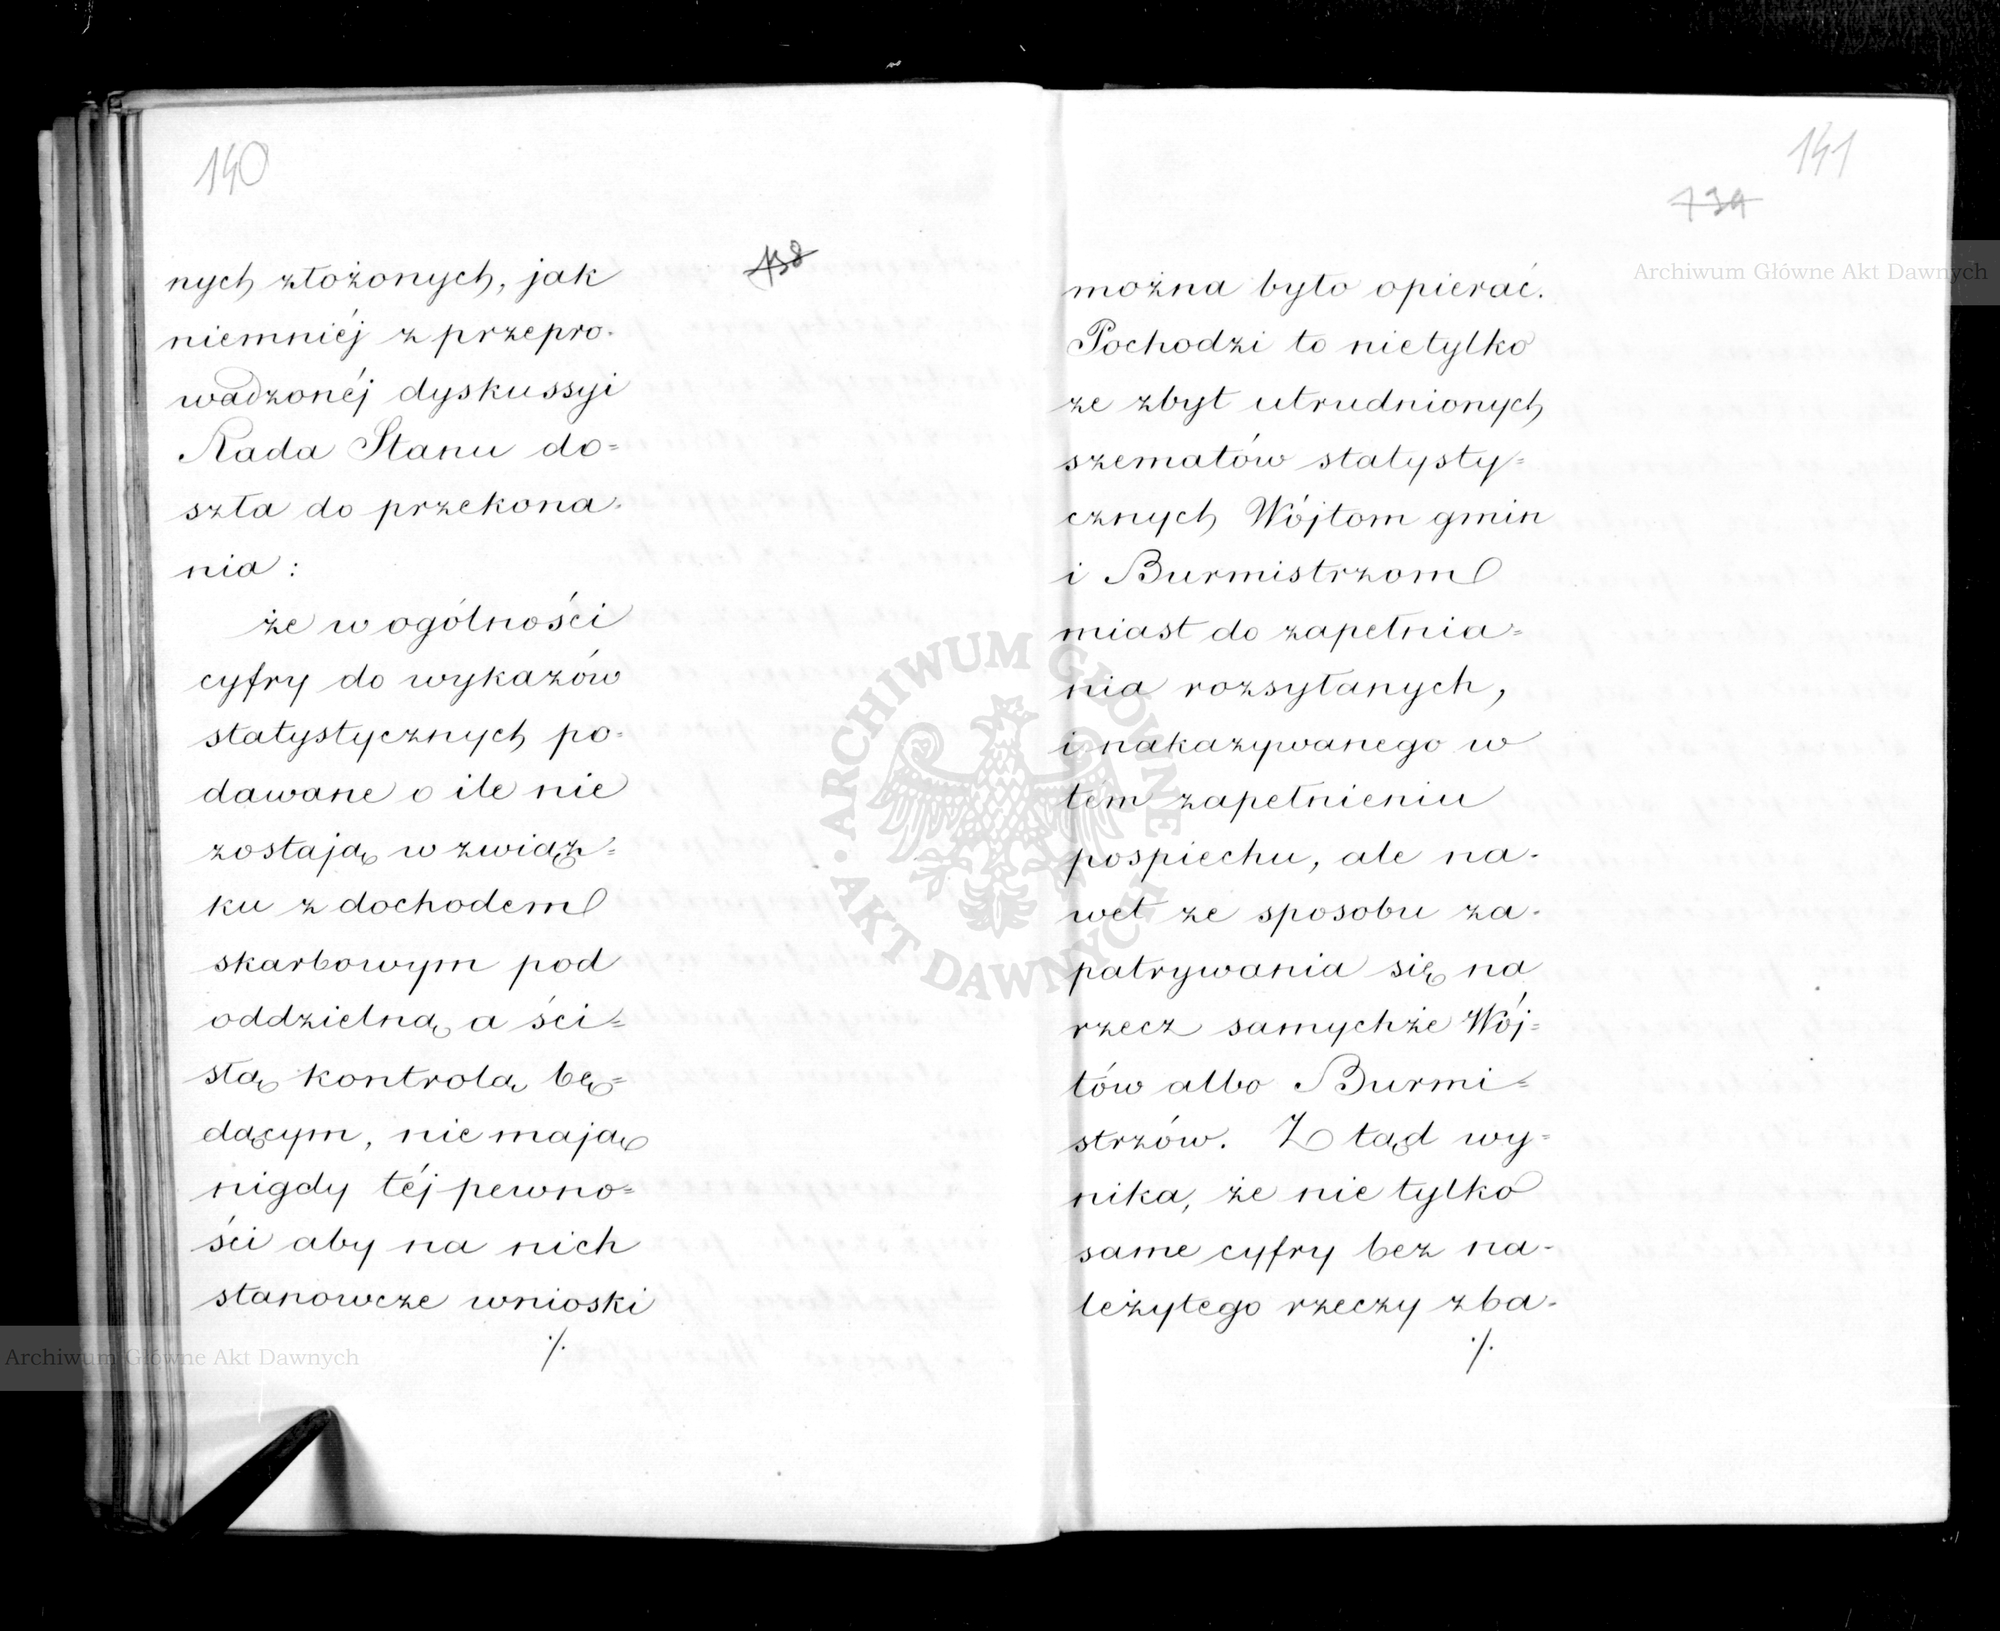 140
138
nych złożonych, jak
niemniéj z przepro-
wadzonéj dyskussyi
Rada Stanu do=
szła do przekona-
nia:
że w ogólności
cyfry do wykazów
statystycznych po-
dawane o ile nie
zostają w związ=
ku z dochodem
skarbowym pod
oddzielną a ści=
słą kontrolą bę=
dącym, nie mają
nigdy téj pewno=
ści aby na nich
stanowcze wnioski
./.
141
139
można było opierać.
Pochodzi to nietylko
ze zbyt utrudnionych
szematów statysty=
cznych Wójtom gmin
i Burmistrzom
miast do zapełnia=
nia rozsyłanych,
i nakazywanego w
tém zapełnieniu
pospiechu, ale na-
wet ze sposobu za-
patrywania się na
rzecz samychże Wój=
tów albo Burmi=
strzów. Z tąd wy=
nika, że nie tylko
same cyfry bez na-
leżytego rzeczy zba-
./.
Archiwum Główne Akt Dawnych
ARCHIWUM GŁÓWNE AKT DAWNYCH
Archiwum Główne Akt Dawnych